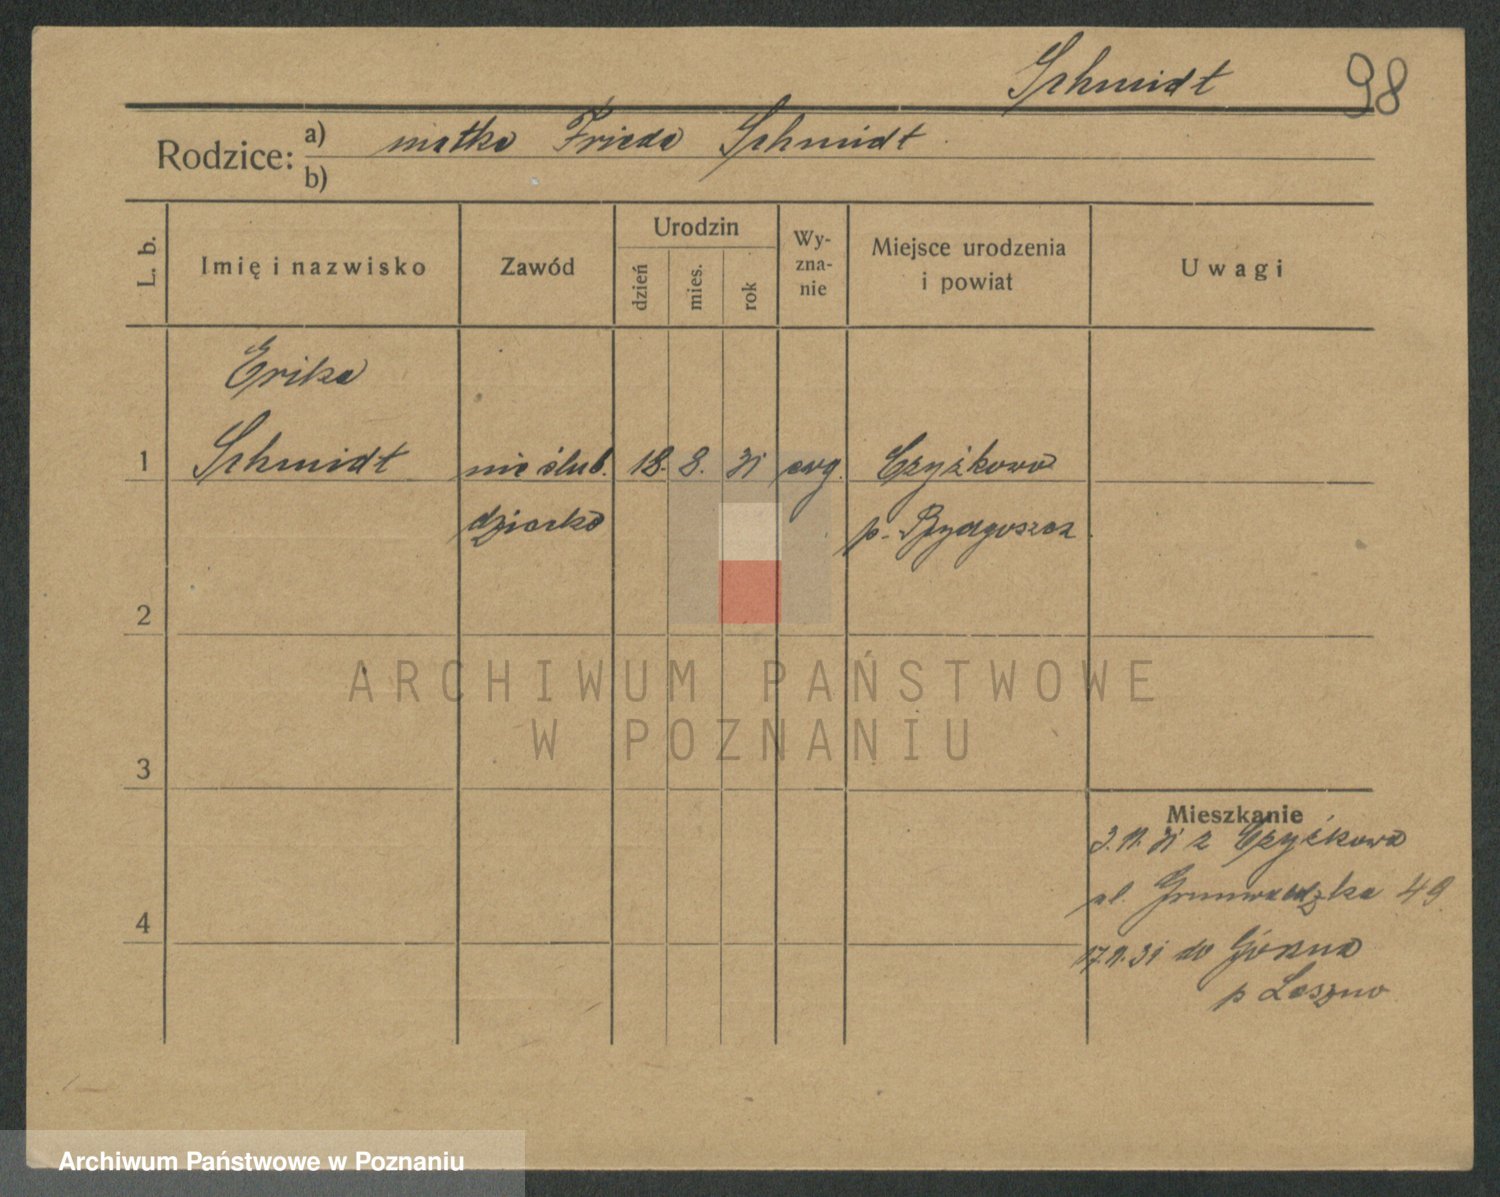 Schmidt 98
Rodzice: a) matka Frieda Schmidt
b)
L. b.
Imię i nazwisko
Zawód
Urodzin
dzień
mies.
rok
Wy-
zna-
nie
Miejsce urodzenia
i powiat
Uwagi
Erika
1 Schmidt nieślub. 18. 8. 31 ewg. Czyżkowo
dziecko p. Bydgoszcz
2
3
4
Mieszkanie
3.11.31 z Czyżkowa
ul. Grunwaldzka 49
17.11.31 do
p Leszno
ARCHIWUM PAŃSTWOWE
W POZNANIU
Archiwum Państwowe w Poznaniu